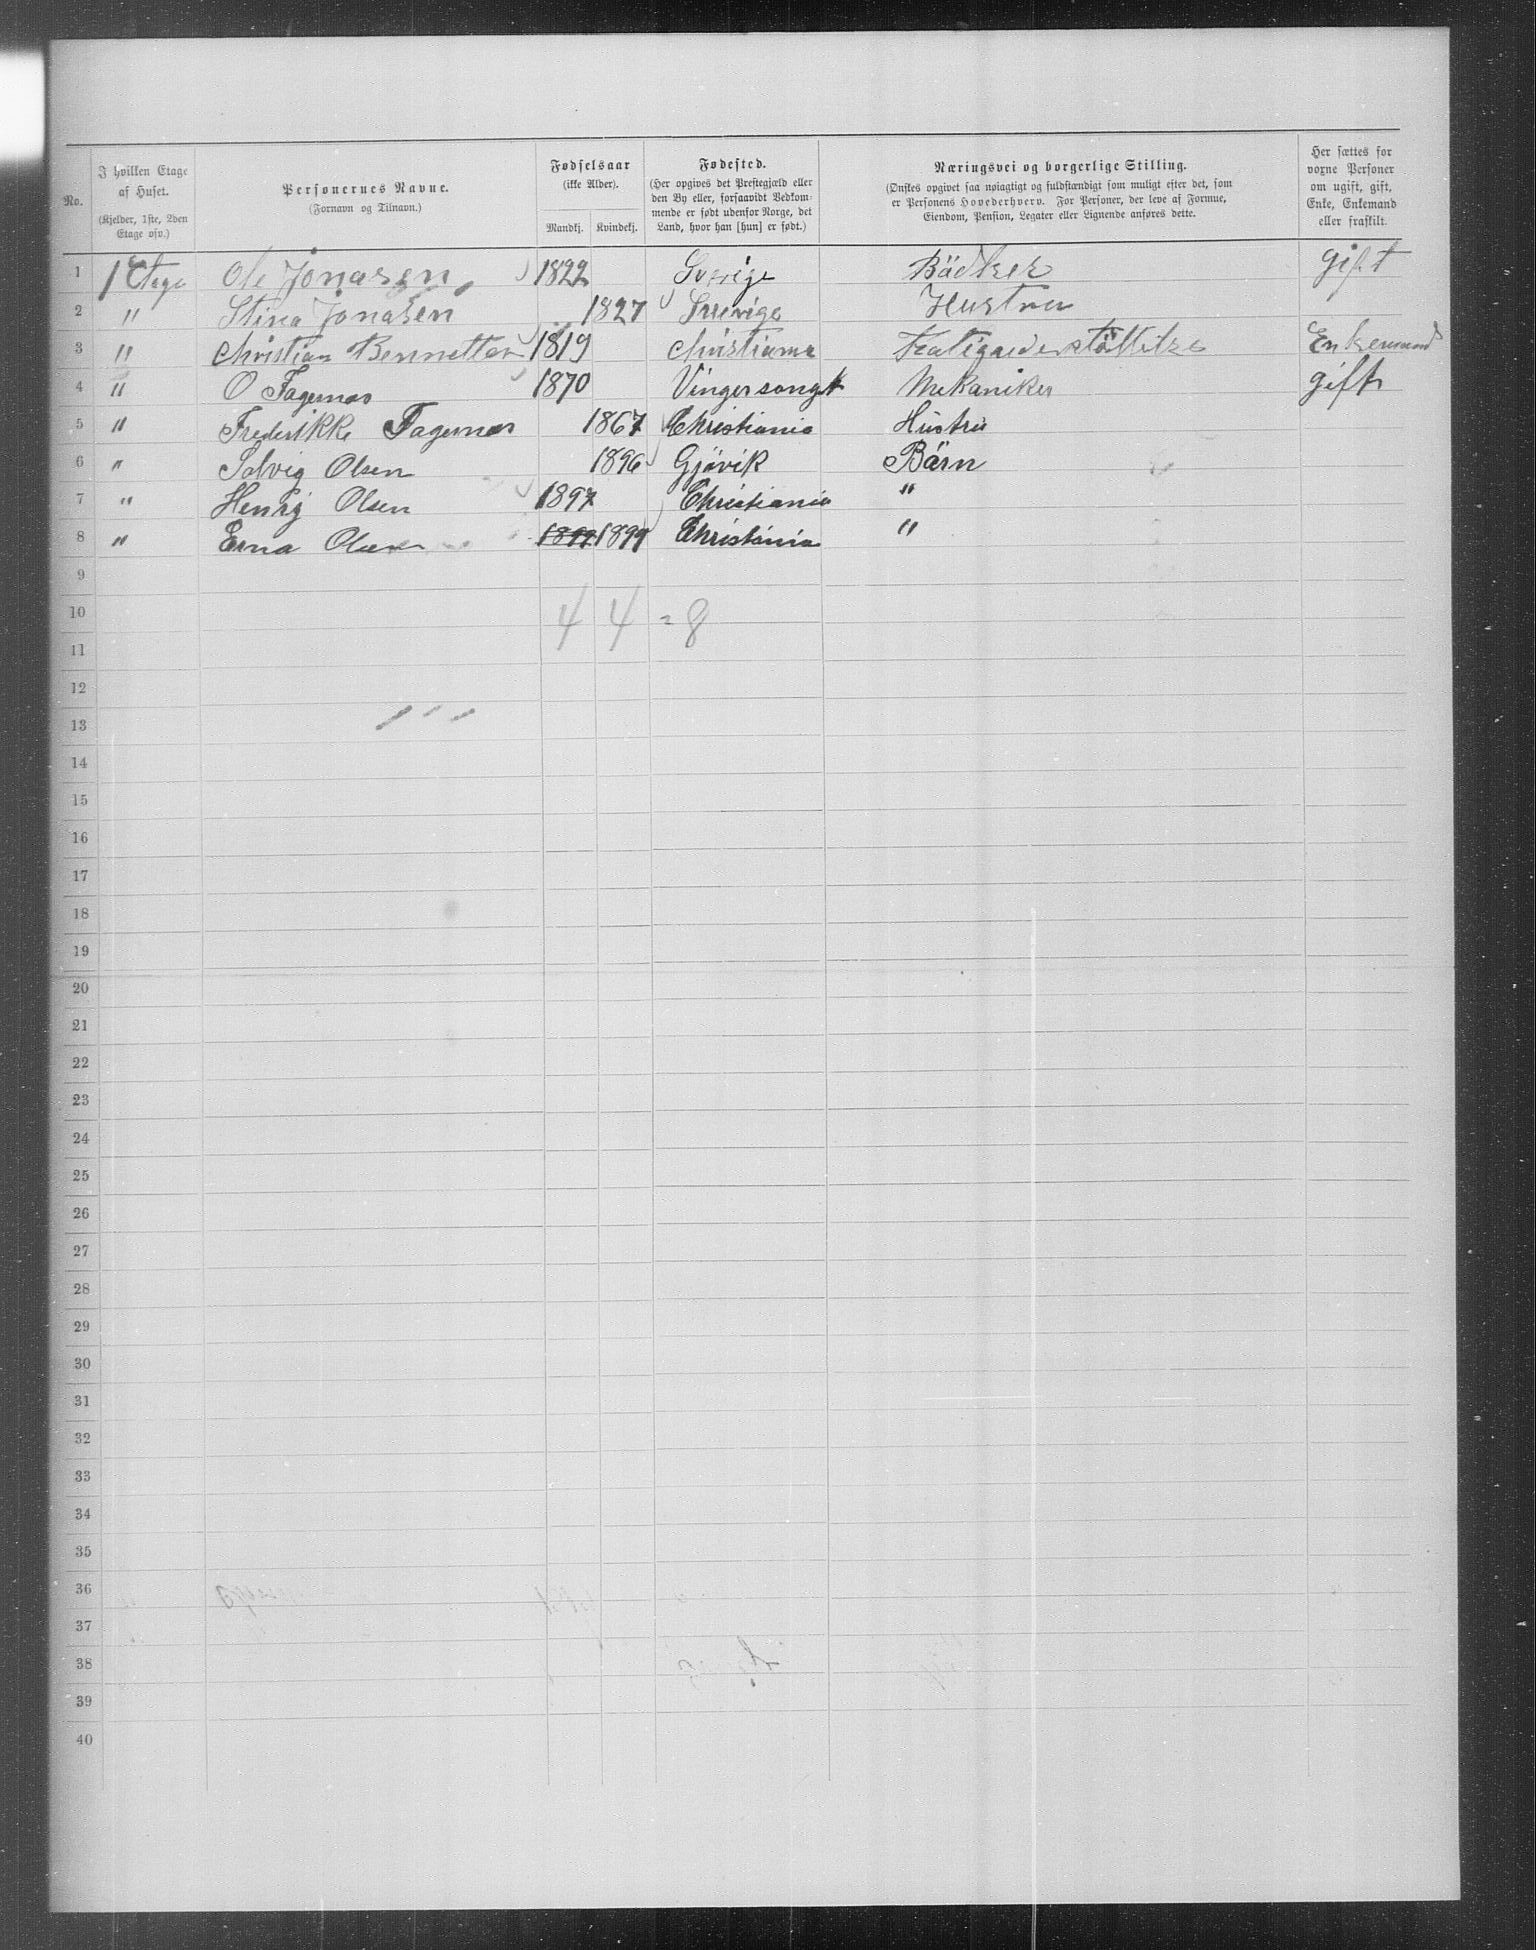 No.	I hvilken Etage af Huset. (Kjelder, 1ste, 2den Etage osv.)	Personernes Navne. (Fornavn og Tilnavn.)	Fødselsaar (ikke Alder). Mandkj. Kvindekj.	Fødested. (Her opgives det Prestegjæld eller den By eller, forsaavidt Vedkommende er født udenfor Norge, det Land, hvor han [hun] er født.)	Næringsvei og borgerlige Stilling. (Ønskes opgivet saa nøiagtigt og fuldstændigt som muligt efter det, som er Personens Hovederhverv. For Personer, der leve af Formue, Eiendom, Pension, Legater eller Lignende anføres dette.	Her sættes for voxne Personer om ugift, gift, Enke, Enkemand eller fraskilt.
1 1 Etage Ole Jonasen 1822 Sverige Bädker gift
2 " Stina Jonasen 1827 Sverige Hustru
3 " Christian Bennetter 1819 Christiania Enkemand
4 " O Fagernas 1870 Vinger Mekaniker gift
5 " Frederikke Fagernas 1867 Christiania Hustru
6 " Solvig Olsen 1896 Gjövik Bärn
7 " Henrij Olsen 1897 Christiania "
8 " Erna Olsen 1899 1899 Christiania "
9
10 4 4 = 8
11
12
13
14
15
16
17
18
19
20
21
22
23
24
25
26
27
28
29
30
31
32
33
34
35
36
37
38
39
40